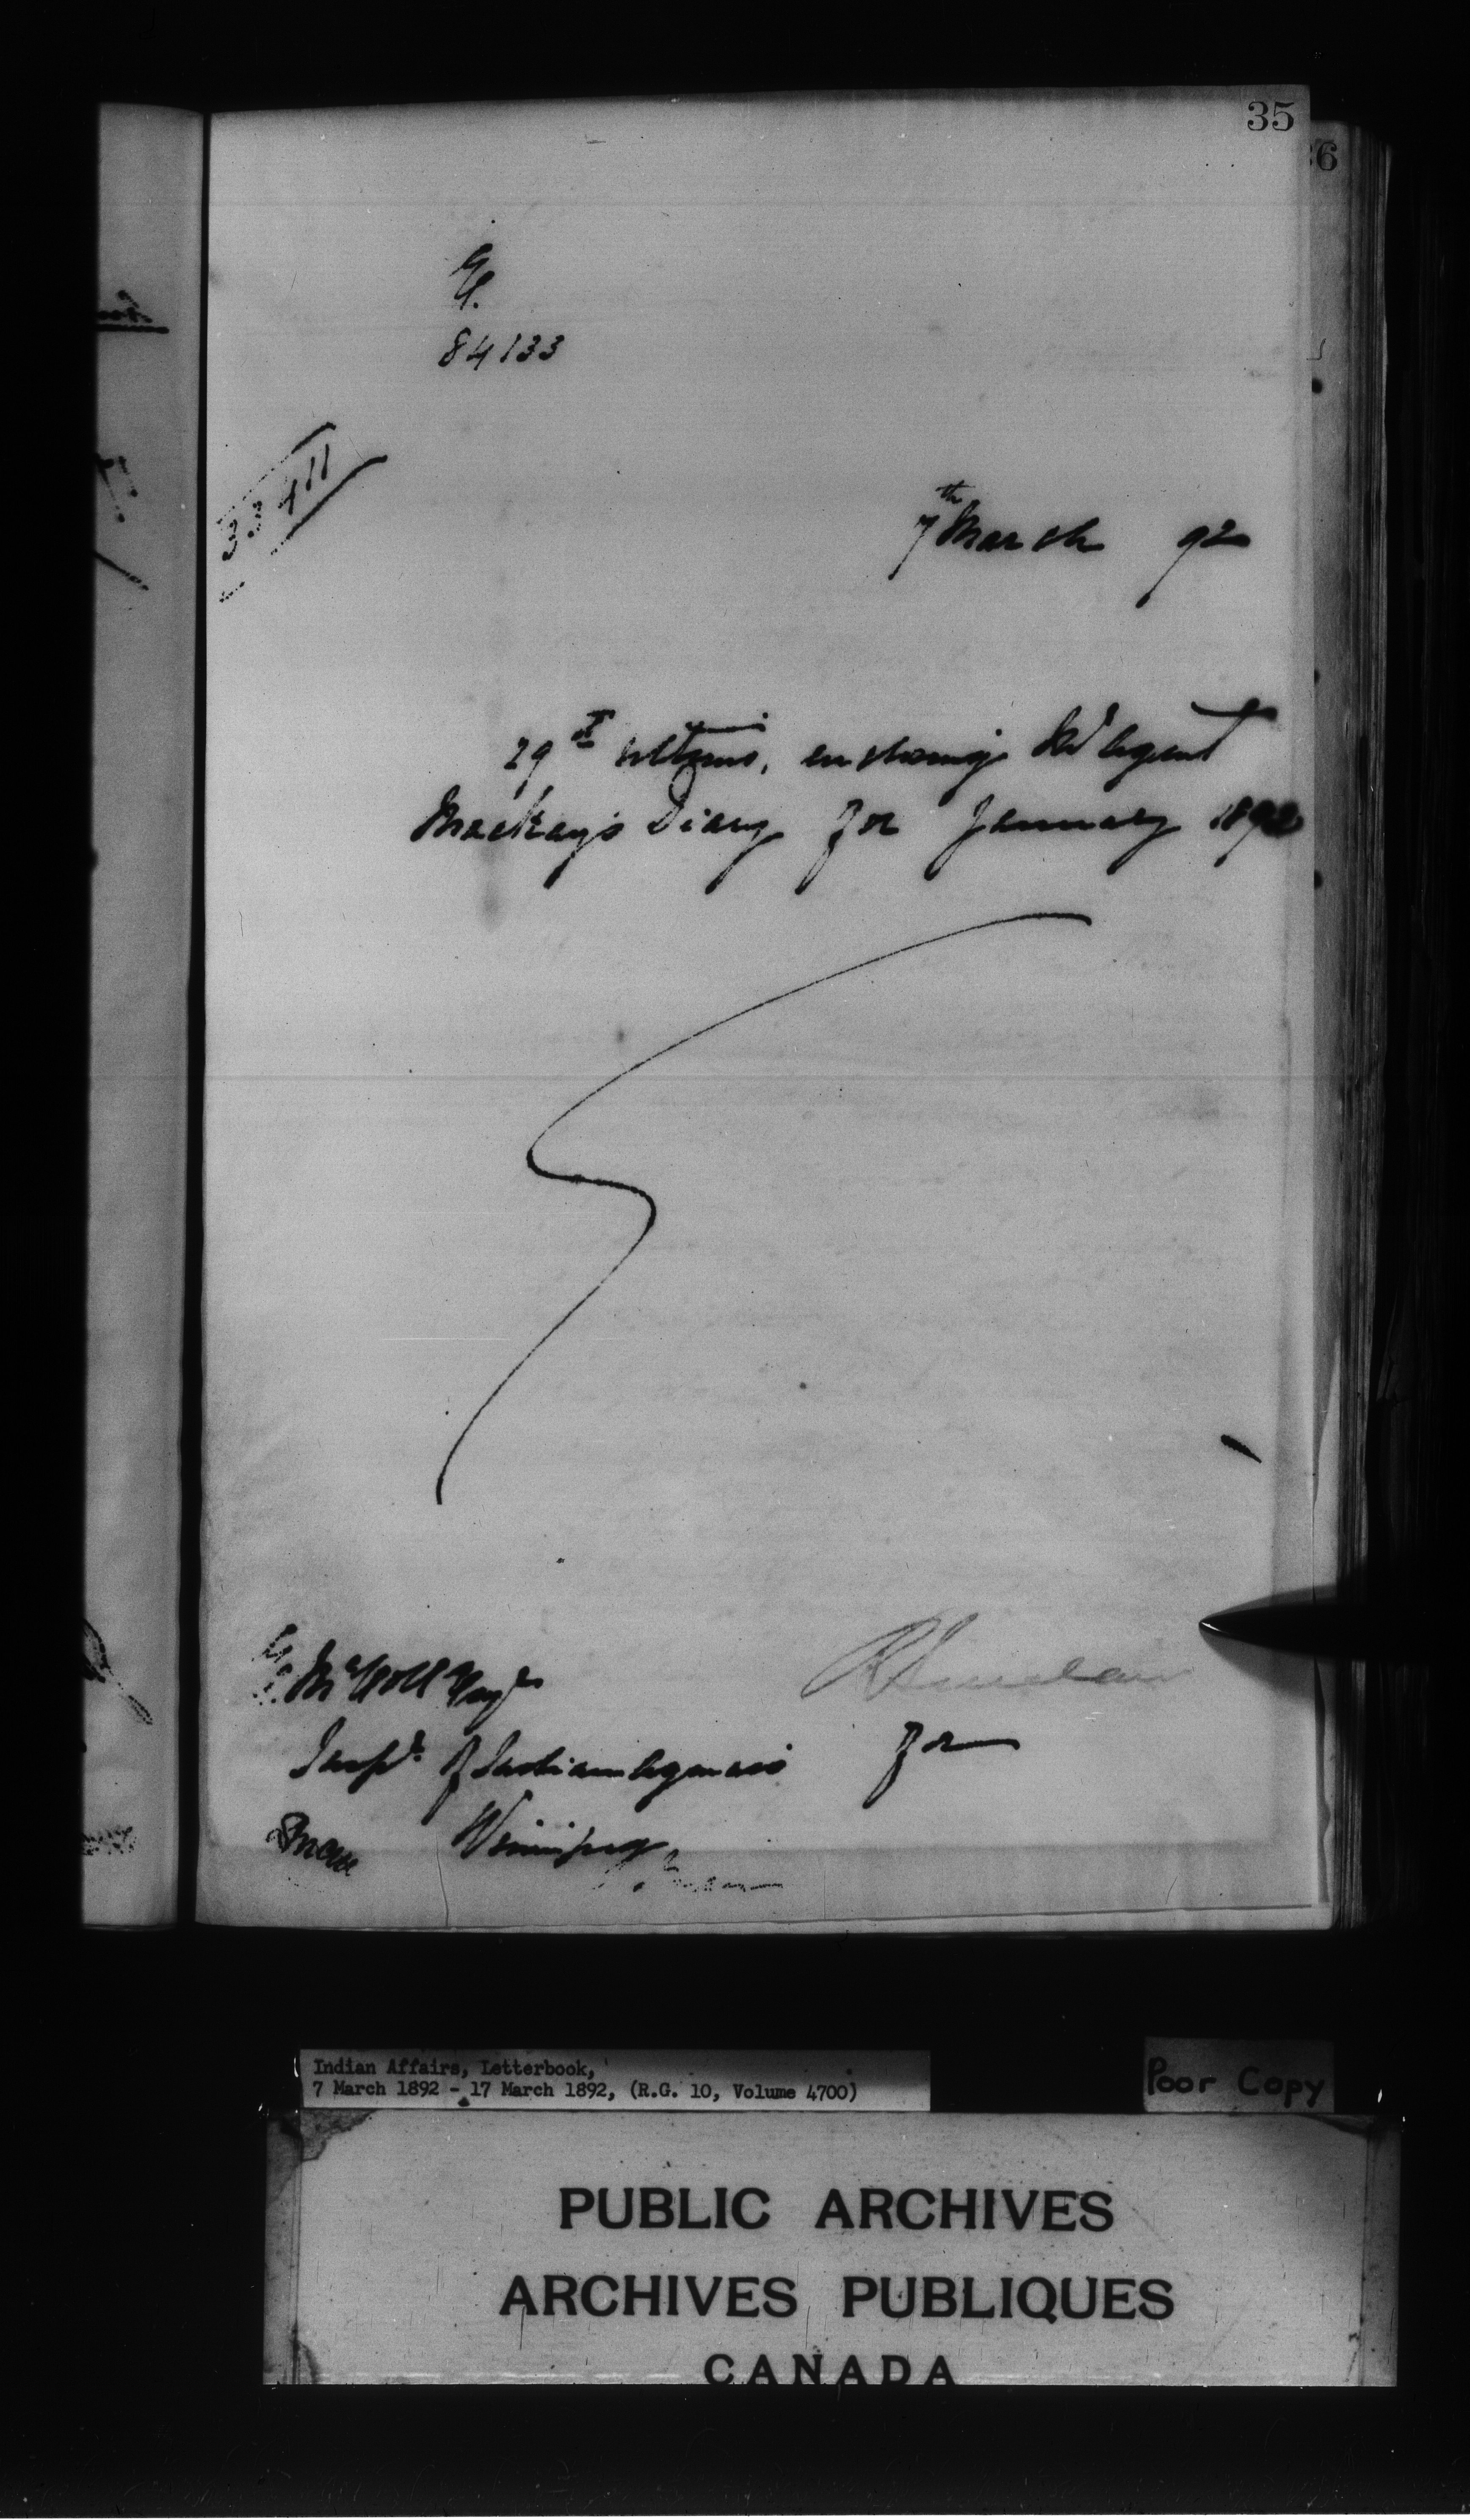 35
84133
33411
7th March 92
29th ultimo, enclosing Ind Agent
Mackay's Diary for January 1892
E. McColl Esqre
Inspr. of Indian Agencies
Winnipeg
for
Indian Affairs, Letterbook,
7 March 1892 - 17 March 1892, (R.G. 10, Volume 4700)
Poor Copy
PUBLIC ARCHIVES
ARCHIVES PUBLIQUES
CANADA